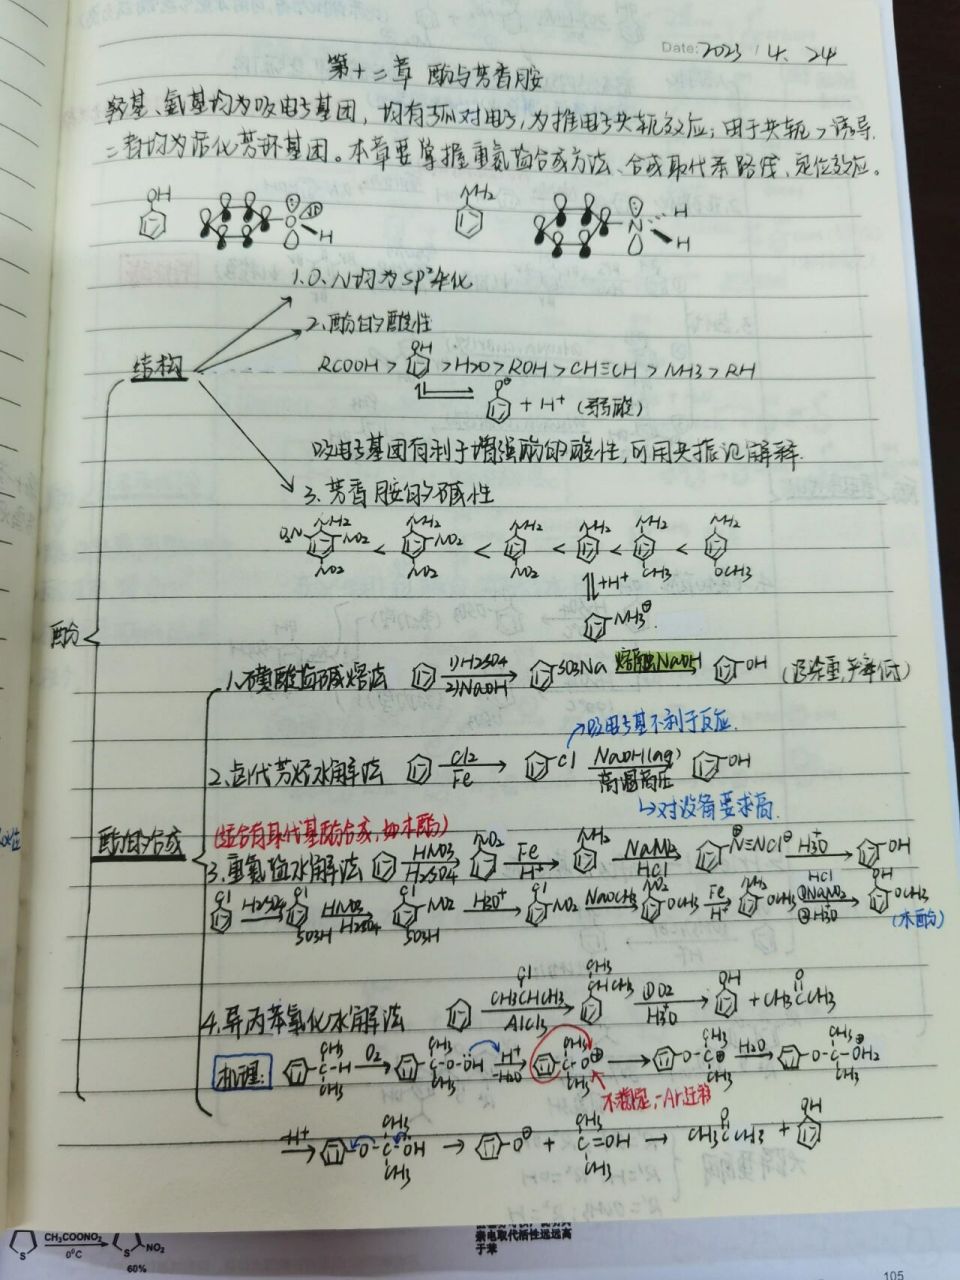 Date: 2023 / 4. 24
第十二章 酚与芳香胺
羟基、氨基均为吸电子基团，均有孤对电子，为推电子共轭效应；由于共轭>诱导.
二者均为活化芳环基团。本章要掌握重氮盐合成方法、合成取代苯路线、定位效应。
OH NH2
H N H H
1.O、N均为sp²杂化
2.酚的酸性
结构
RCOOH > OH > H2O > ROH > CH≡CH > NH3 > RH
O⊖ + H⁺ (弱酸)
吸电子基团有利于增强酚的酸性,可用共振论解释.
3.芳香胺的碱性
O2N NH2 NO2 NO2 < NH2 NO2 NO2 < NH2 NO2 < NH2 < NH2 CH3 < NH2 OCH3
+H⁺
NH3⊕
酚
1.磺酸盐碱熔法 1)H2SO4 2)NaOH SO3Na 熔融NaOH OH (污染重,产率低)
吸电子基不利于反应.
2.卤代芳烃水解法 Cl2 Fe Cl NaOH(aq) 高温高压 OH
对设备要求高.
酚的合成
(适合有取代基酚合成,如木酚)
3.重氮盐水解法 HNO3 H2SO4 NO2 Fe H⁺ NH2 NaNO2 HCl N≡NCl⊖ H3O⁺ OH
Cl H2SO4 Cl SO3H HNO3 H2SO4 Cl NO2 SO3H H3O⁺ Cl NO2 NaOCH3 NO2 OCH3 Fe H⁺ NH2 OCH3 HCl ①NaNO2 ②H3O⁺ OH OCH3
(木酚)
4.异丙苯氧化水解法 Cl CH3CHCH3 AlCl3 CH3 CHCH3 ①O2 H3O⁺ OH + CH3CCH3 O
机理: CH3 C-H CH3 O2 CH3 C-O-OH CH3 H⁺ -H2O CH3 C-O⊕ CH3 O-C⊕ CH3 CH3 H2O O-C-OH2 CH3 CH3
不稳定,-Ar迁移
-H⁺ O-C-OH CH3 CH3 → O⊖ + CH3 C=OH CH3 → CH3CCH3 O + OH
CH3COONO2
0°C
S
S NO2
60%
亲电取代活性远远高
于苯
105